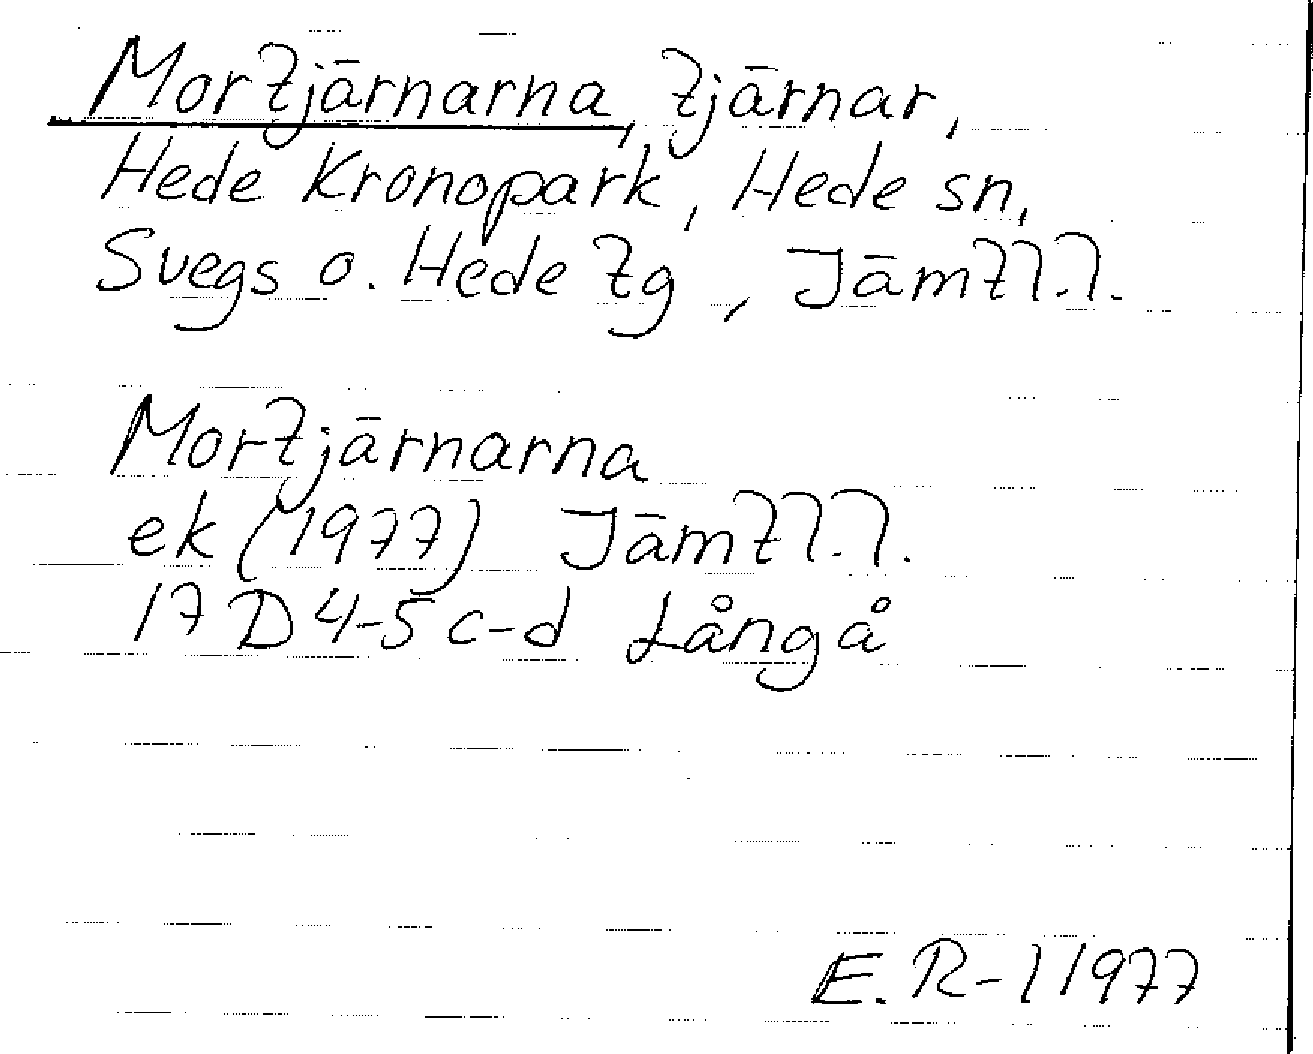 Mortjärnarna, tjärnar,
Hede Kronopark, Hede sn,
Svegs o. Hede tg, Jämtl.l.
Mortjärnarna
ek (1977) Jämtl.l.
17D 4-5 c-d Långå
E. R-l 1977